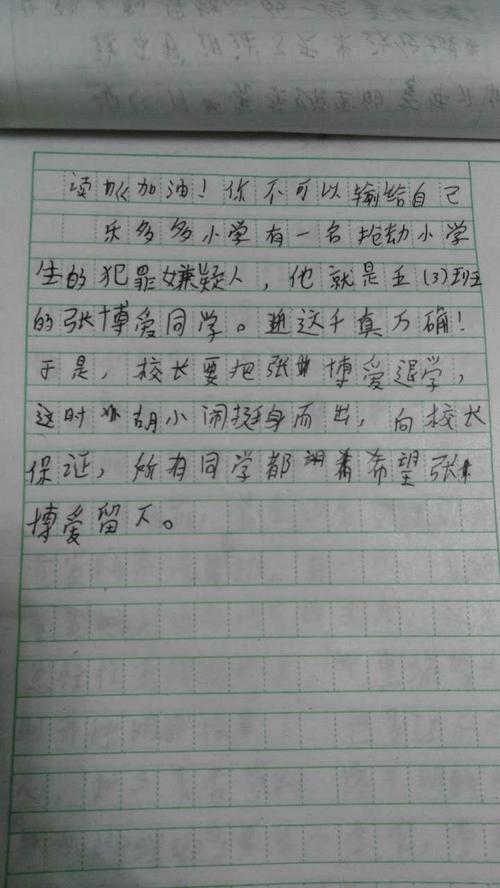 读《加油!你不可以输给自己
乐多多小学有一名抢劫小学
生的犯罪嫌疑人,他就是五(3)班
的张博爱同学。这千真万确!
于是,校长要把张博爱退学,
这时胡小闹挺身而出,向校长
保证,所有同学都希望张
博爱留下。